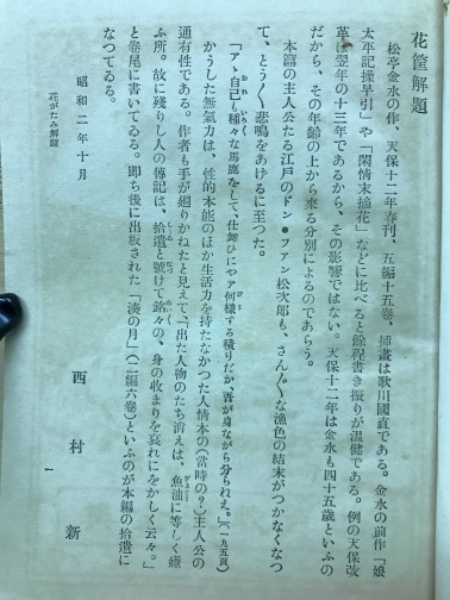 花筐解題
松亭金水の作、天保十二年春刊、五編十五巻、挿畫は歌川國直である。金水の前作「娘
太平記操早引」や「閑情末摘花」などに比べると餘程書き振りが温健である。例の天保改
革は翌年の十三年であるから、その影響ではない。天保十二年は金水も四十五歳といふの
だから、その年齢の上から來る分別によるのであらう。
本篇の主人公たる江戸のドン・フアン松次郎も、さん〴〵な漁色の結末がつかなくなつ
て、とう〳〵悲鳴をあげるに至つた。
「アヽ自己も種々な馬鹿をして、仕舞ひにやア何様する積りだか、吾が身ながら分られえ。」(一九五頁)
かうした無氣力は、性的本能のほか生活力を持たなかつた人情本の(當時の?)主人公の
通有性である。作者も手が廻りかねたと見えて、「出た人物のたち消えは、魚油に等しく
ふ所。故に殘りし人の傳記は、拾遺と號けて銘々の、身の收まりを哀れにをかしく云々。」
と巻尾に書いてゐる。即ち後に出版された「淡の月」(二編六巻)といふのが本編の拾遺に
なつてゐる。
昭和二年十月
西村新
花がたみ解題
一